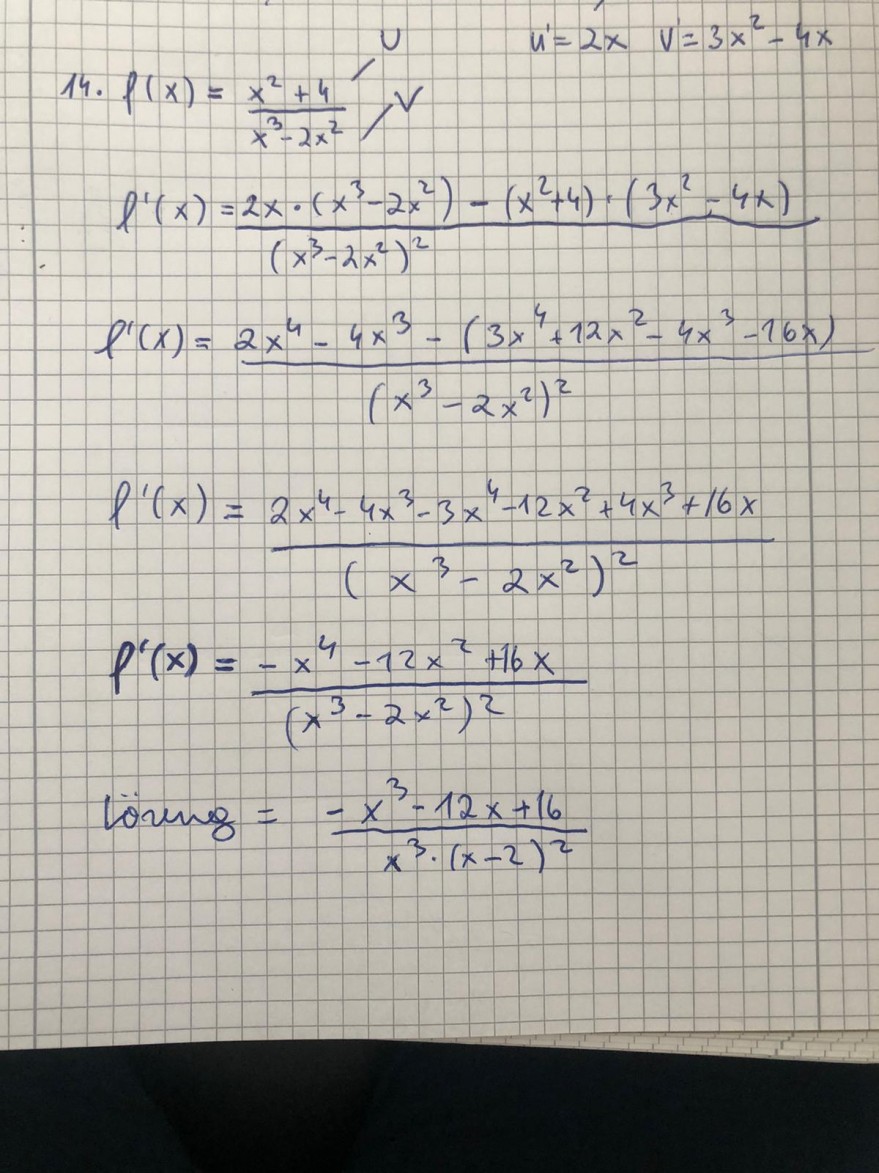 u' = 2x v' = 3x² - 4x
U
14. f(x) = x² + 4 / x³ - 2x²
V
f'(x) = 2x · (x³ - 2x²) - (x² + 4) · (3x² - 4x) / (x³ - 2x²)²
f'(x) = 2x⁴ - 4x³ - (3x⁴ + 12x² - 4x³ - 16x) / (x³ - 2x²)²
f'(x) = 2x⁴ - 4x³ - 3x⁴ - 12x² + 4x³ + 16x / (x³ - 2x²)²
f'(x) = - x⁴ - 12x² + 16x / (x³ - 2x²)²
Lösung = - x³ - 12x + 16 / x³ · (x - 2)²